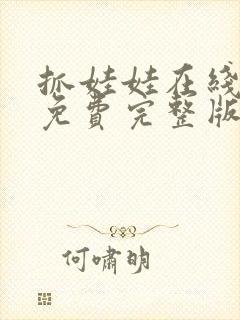 抓娃娃在线
免费完整版
何啸明